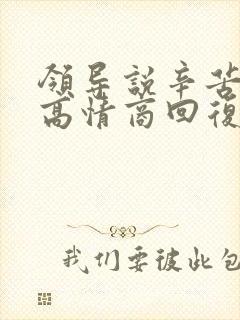 領导説辛苦
高情商回復
我们要彼此包